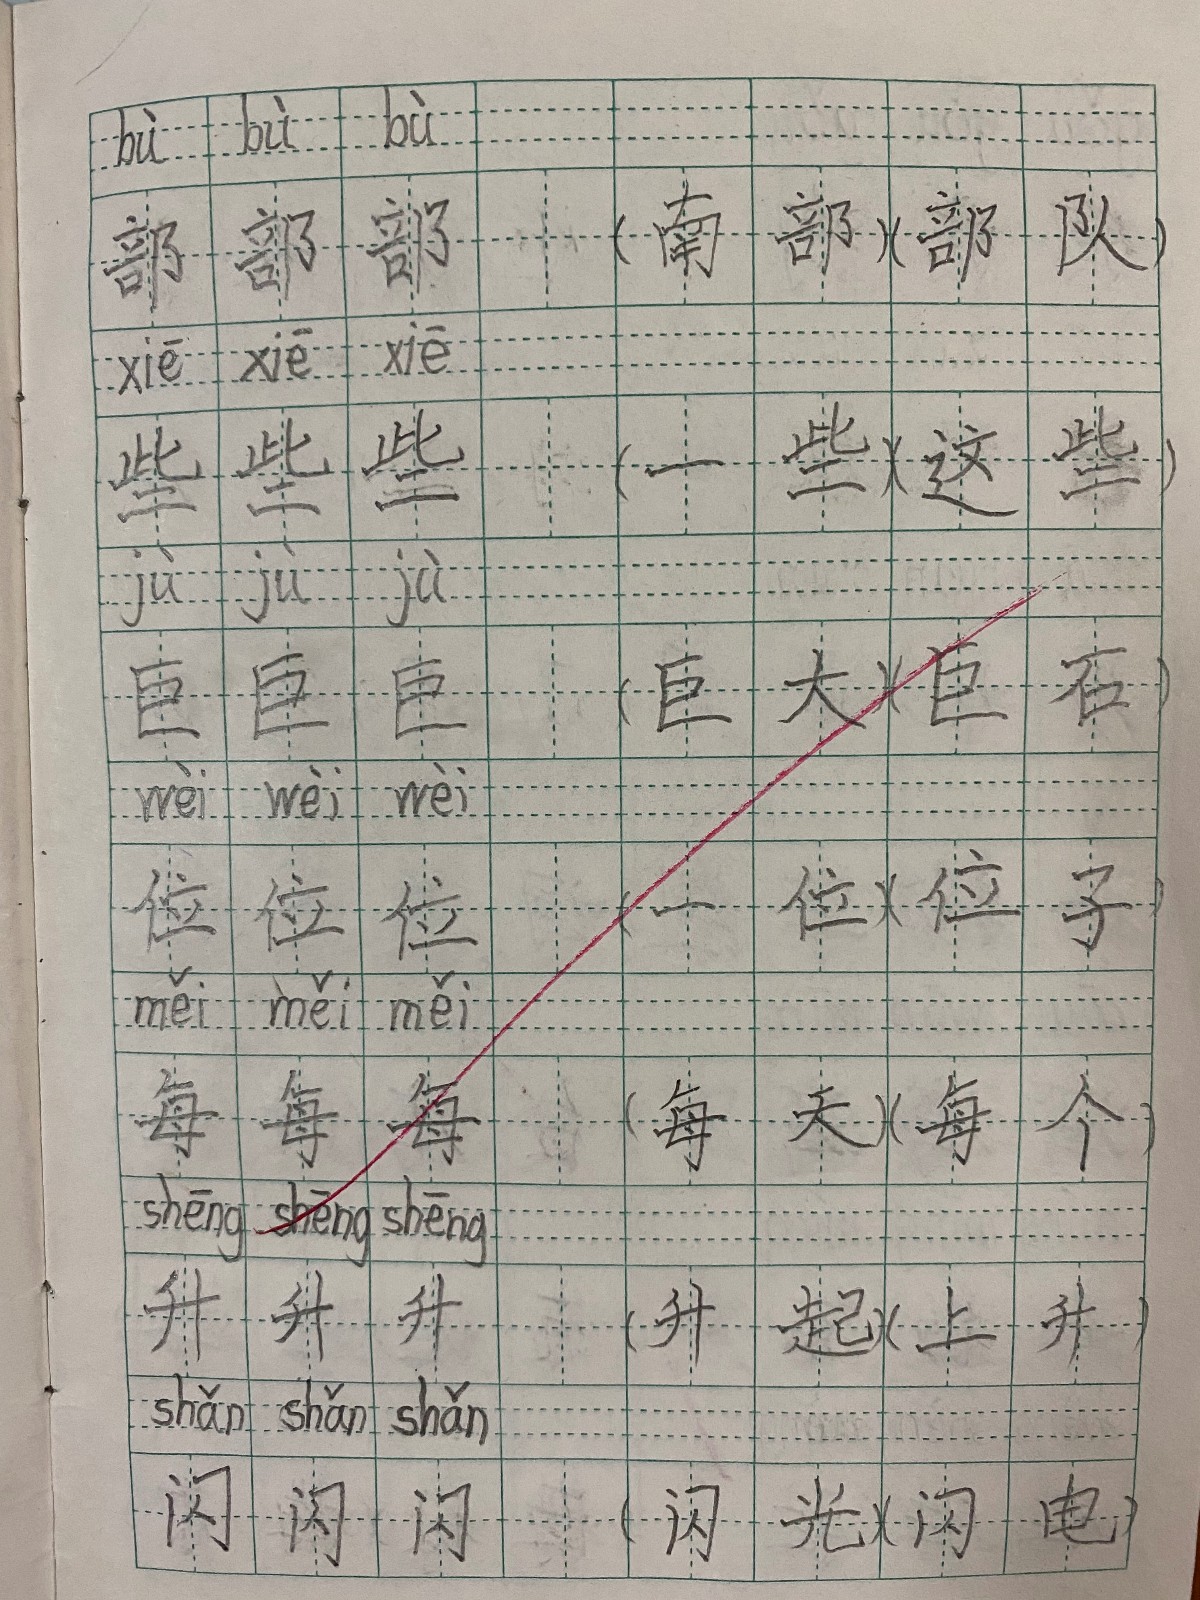 bù bù bù
部 部 部 (南 部)(部 队)
xiē xiē xiē
些 些 些 (一 些)(这 些)
jù jù jù
巨 巨 巨 (巨 大)(巨 石)
wèi wèi wèi
位 位 位 (一 位)(位 子)
měi měi měi
每 每 每 (每 天)(每 个)
shēng shēng shēng
升 升 升 (升 起)(上 升)
shǎn shǎn shǎn
闪 闪 闪 (闪 光)(闪 电)